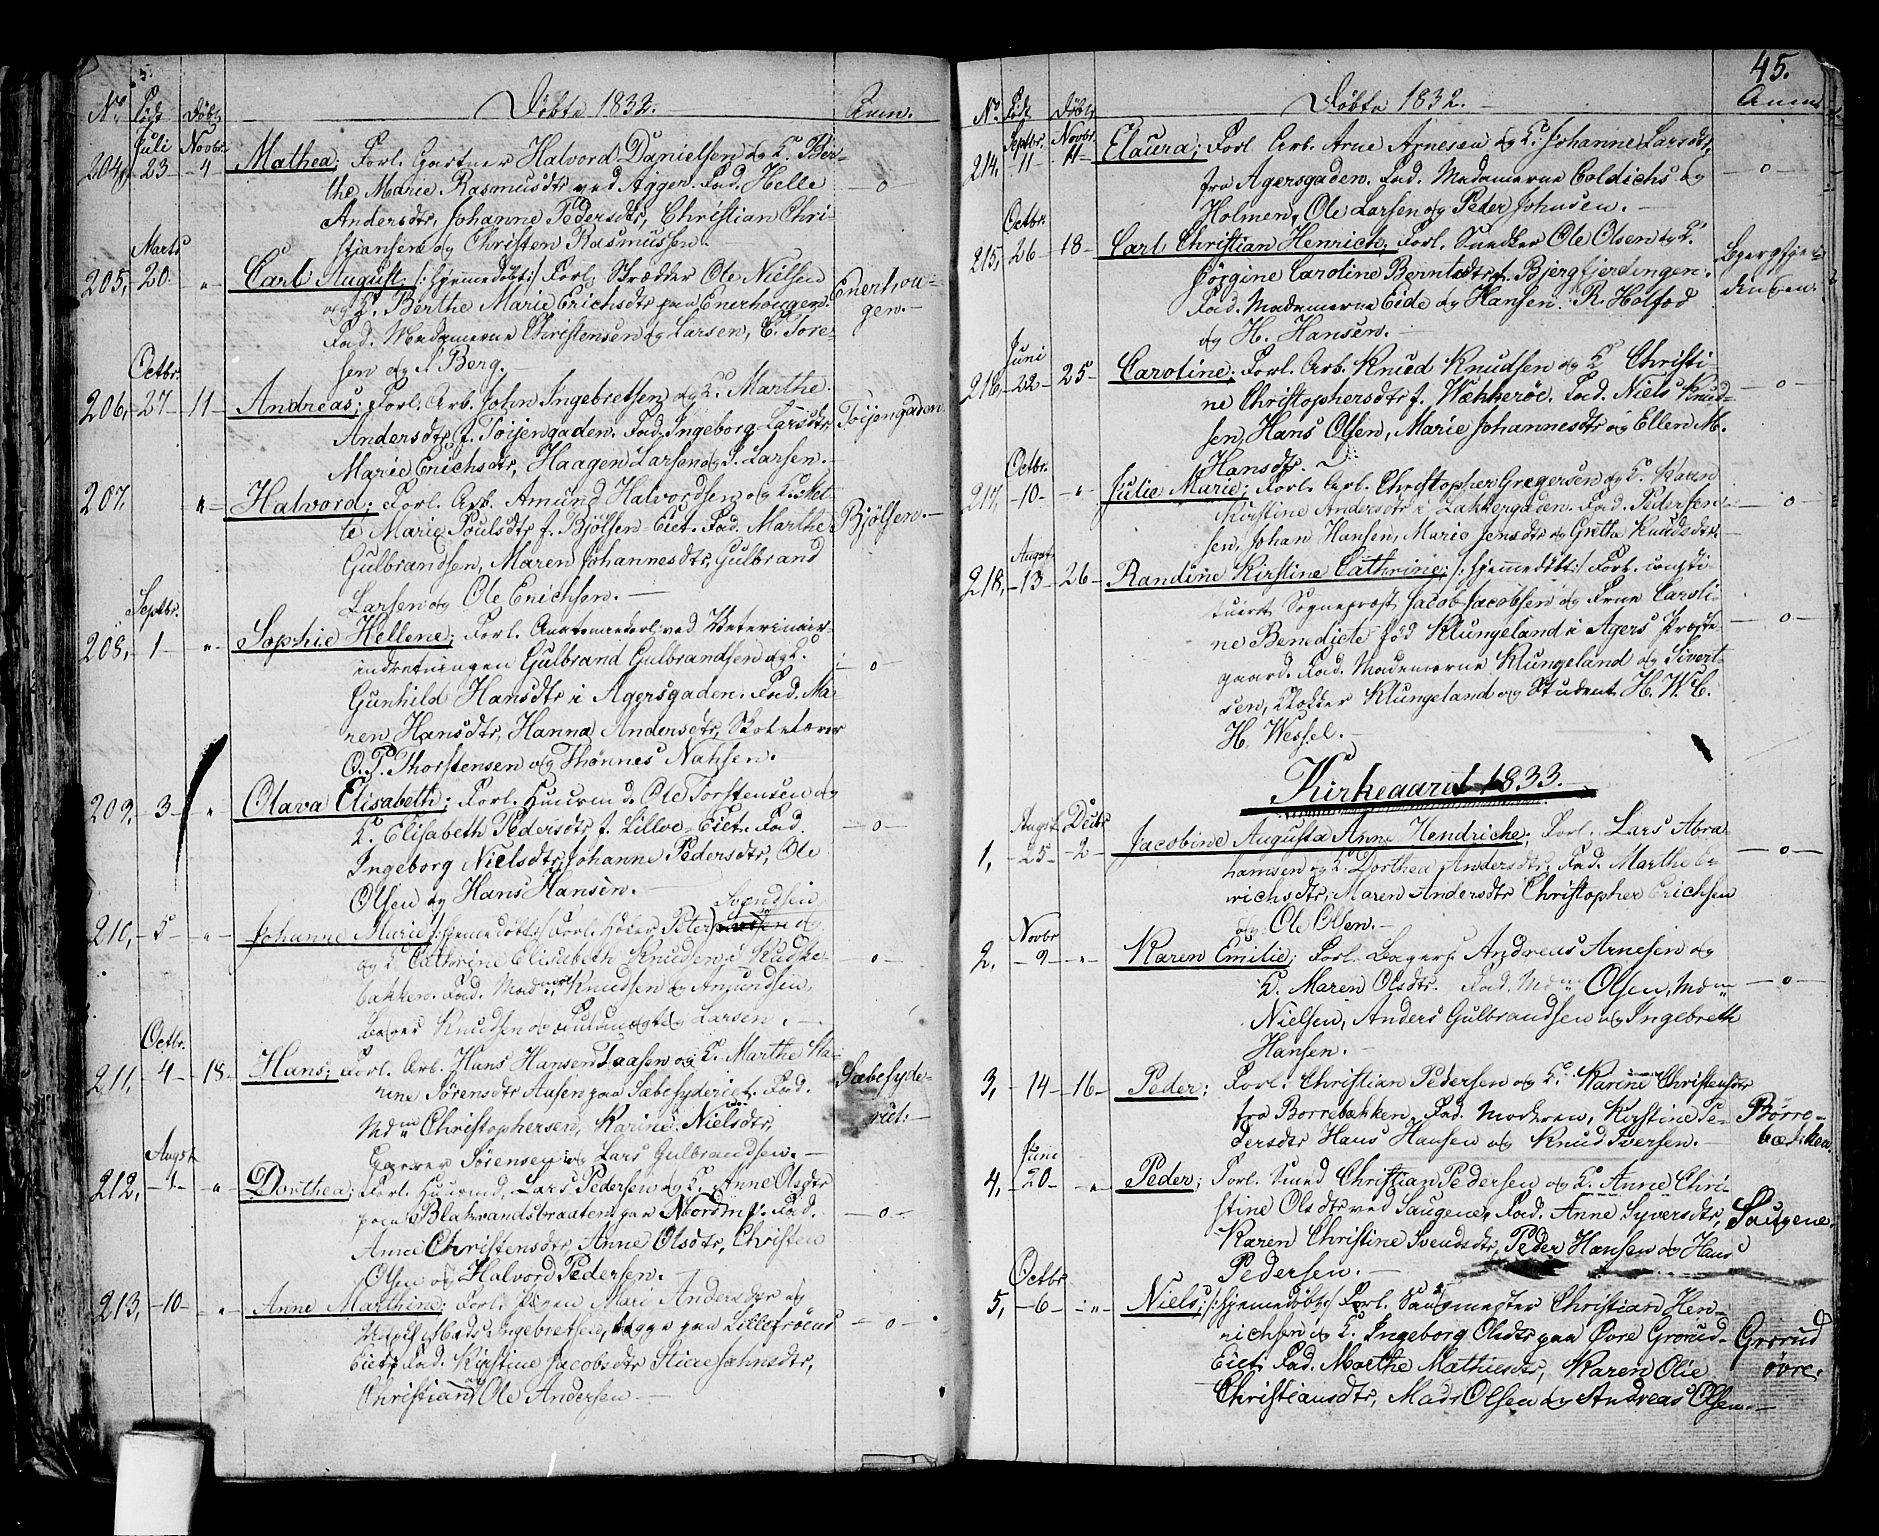 Døbte 1832.
No Født Døbt Anm.
Juli Novbr.
204, 23 4 Mathea; Forl. Gartner Halvord Danielsen og K. Ber-
the Marie Rasmusdtr ved Agger. Fad. Helle
Andersdtr, Johanne Pedersdtr, Christian Chri-
stiansen og Christen Rasmussen. —
— o —
Marts
205, 20. " Carl August; /: hjemmedøbt :/ Forl. Skrædder Ole Nielsen
og K. Berthe Marie Erichsdtr paa Enerhougen.
Fad. Madamerne Christensen og Larsen, C. Tore-
sen og Berg. —
Enerhou-
gen. —
Octbr.
206, 27 11 Andreas; Forl. Arb. John Ingebretsen og K. Marthe
Andersdtr f. Tøijengaden. Fad. Ingeborg Larsdtr
Marie Erichsdtr, Haagen Larsen og S. Larsen. —
Tøijengaden
207, " Halvord; Forl. Arb. Amund Halvordsen og K. Met-
te Marie Poulsdtr f. Bjølsen Eiet. Fad. Marthe
Gulbrandsen, Maren Johannesdtr, Gulbrand
Larsen og Ole Erichsen. —
Bjølsen. —
Septbr.
208, 1 " Sophie Hellene; Forl. ved Veterinair-
indretningen Gulbrand Gulbrandsen og K.
Gunhild Hansdtr i Agersgaden. Fad. Ma-
ren Hansdtr, Hanna Andersdtr, Skolelærer
O. P. Thorstensen og Thønnes Nahsen.
— o —
209, 3 " Olava Elisabeth; Forl. Huusmd. Ole Torstensen og
K. Elisabeth Pedersdtr f. Lilloe-Eiet. Fad.
Ingeborg Nielsdtr, Johanne Pedersdtr, Ole
Olsen og Hans Hansen. —
— o —
210, 5 " Johanne Marie /: hjemmedøbt :/ Forl. Høker Peter Svendsen
og K. Cathrine Elisabeth Knudsen i Rudske-
bakken. Fad. Mad. Knudsen og Amundsen,
Knudsen og Larsen. —
— o —
Octbr.
211, 4 18 Hans; Forl. Arb. Hans Hansen Aasen og K. Marthe Ma-
rine Sørensdtr Aasen paa Sæbesyderiet. Fad.
Mdm Christophersen, Karine Nielsdtr,
Garver Sørensen og Lars Gulbrandsen. —
Sæbesyde-
riet. —
Augst
212, 4 " Dorthea; Forl. Huusmd. Lars Pedersen og K. Anne Olsdtr
paa Blakvandsbraaten paa Nordm. Fad.
Anne Christensdtr, Anne Olsdtr, Christen
Olsen og Halvord Pedersen. —
— o —
213, 10 " Anne Marthine; Forl. Pigen Mari Andersdtr og
Ugift Mads Ingebretsen, begge paa Lillefrøens
Eiet. Fad. Kirstine Jacobsdtr Stine Jahnsdtr,
Christian og Ole Andersen —
— o —
45.
Døbte 1832.
No Født Døbt Anm.
Septbr. Novbr.
214, 11 11 Elaura; Forl. Arb. Arne Arnesen og K. Johanne Larsdtr,
fra Agersgaden. Fad. Madamerne Coldichs og
Holmen, Ole Larsen og Peder Johnsen. —
— o —
Octbr.
215, 26 18 Carl Christian Henrich; Forl. Snedker Ole Olsen og K.
Jørgine Caroline Berntsdtr f. Bjergfjerdingen.
Fad. Madamerne Eide og Hansen. R. Holfod
og H. Hansen. —
Bjergfjer-
dingen.
Juni
216, 22 25 Caroline; Forl. Arb. Knud Knudsen og K. Christi-
ne Christophersdtr f. Wækkerøe. Fad. Niels Knud-
sen, Hans Olsen, Marie Johannesdtr og Ellen M.
Hansdtr. —
— o —
Octbr.
217, 10 " Julie Marie; Forl. Arb. Christopher Gregersen og K. Karen
Kirstine Andersdtr i Lakkergaden. Fad. Peder
sen, Johan Hansen, Marie Jensdtr og Grethe Knudsdtr.
— o —
Augst
218, 13 26 Randine Kirstine Cathrine; /: hjemmedøbt :/ Forl. consti-
tueret Sognepræst Jacob Jacobsen og Frue Caroli-
ne Benedicte født Klungeland i Agers Præste-
gaard. Fad. Madamerne Klungeland og Sivert-
sen, Klokker Klungeland og Student H. W. C.
H. Wessel. —
— o —
Kirkeaaret 1833.
Augst Decbr
1, 25 2 Jacobine Augusta Anne Hendriche; Forl. Lars Abra-
hamsen og K. Dorthea Andersdtr, Fad. Marthe E-
richsdtr, Maren Andersdtr Christopher Erichsen
og Ole Olsen. —
— o —
Novbr
2, 9 " Karen Emilie; Forl. Bagers. Andreas Arnesen og
K. Maren Olsdtr. Fad. Mdm Olsen, Mdm
Nielsen, Anders Gulbrandsen og Ingebreth
Hansen. —
— o —
3, 14 16 Peder; Forl. Christian Pedersen og K. Karine Christensdtr
fra Borrebakken. Fad. Moderen, Kirstine Pe-
dersdtr Hans Hansen og Knud Iversen. —
Børre-
bakken.
Juni
4, 20 " Peder; Forl. Smed Christian Pedersen og K. Anne Chri-
stine Olsdtr ved Saugene, Fad. Anne Syversdtr,
Karen Christine Svendsdtr, Peder Hansen og Hans
Pedersen. —
Saugene.
Octbr
5, 6 " Niels; /: hjemmedøbt :/ Forl. Saugmester Christian Hen-
richsen og K. Ingeborg Olsdtr paa Øvre Grorud-
Eiet. Fad. Marthe Mathiesdtr, Karen Olie
Christiansdtr, Mads Olsen og Andreas Olsen. —
Grorud
øvre.